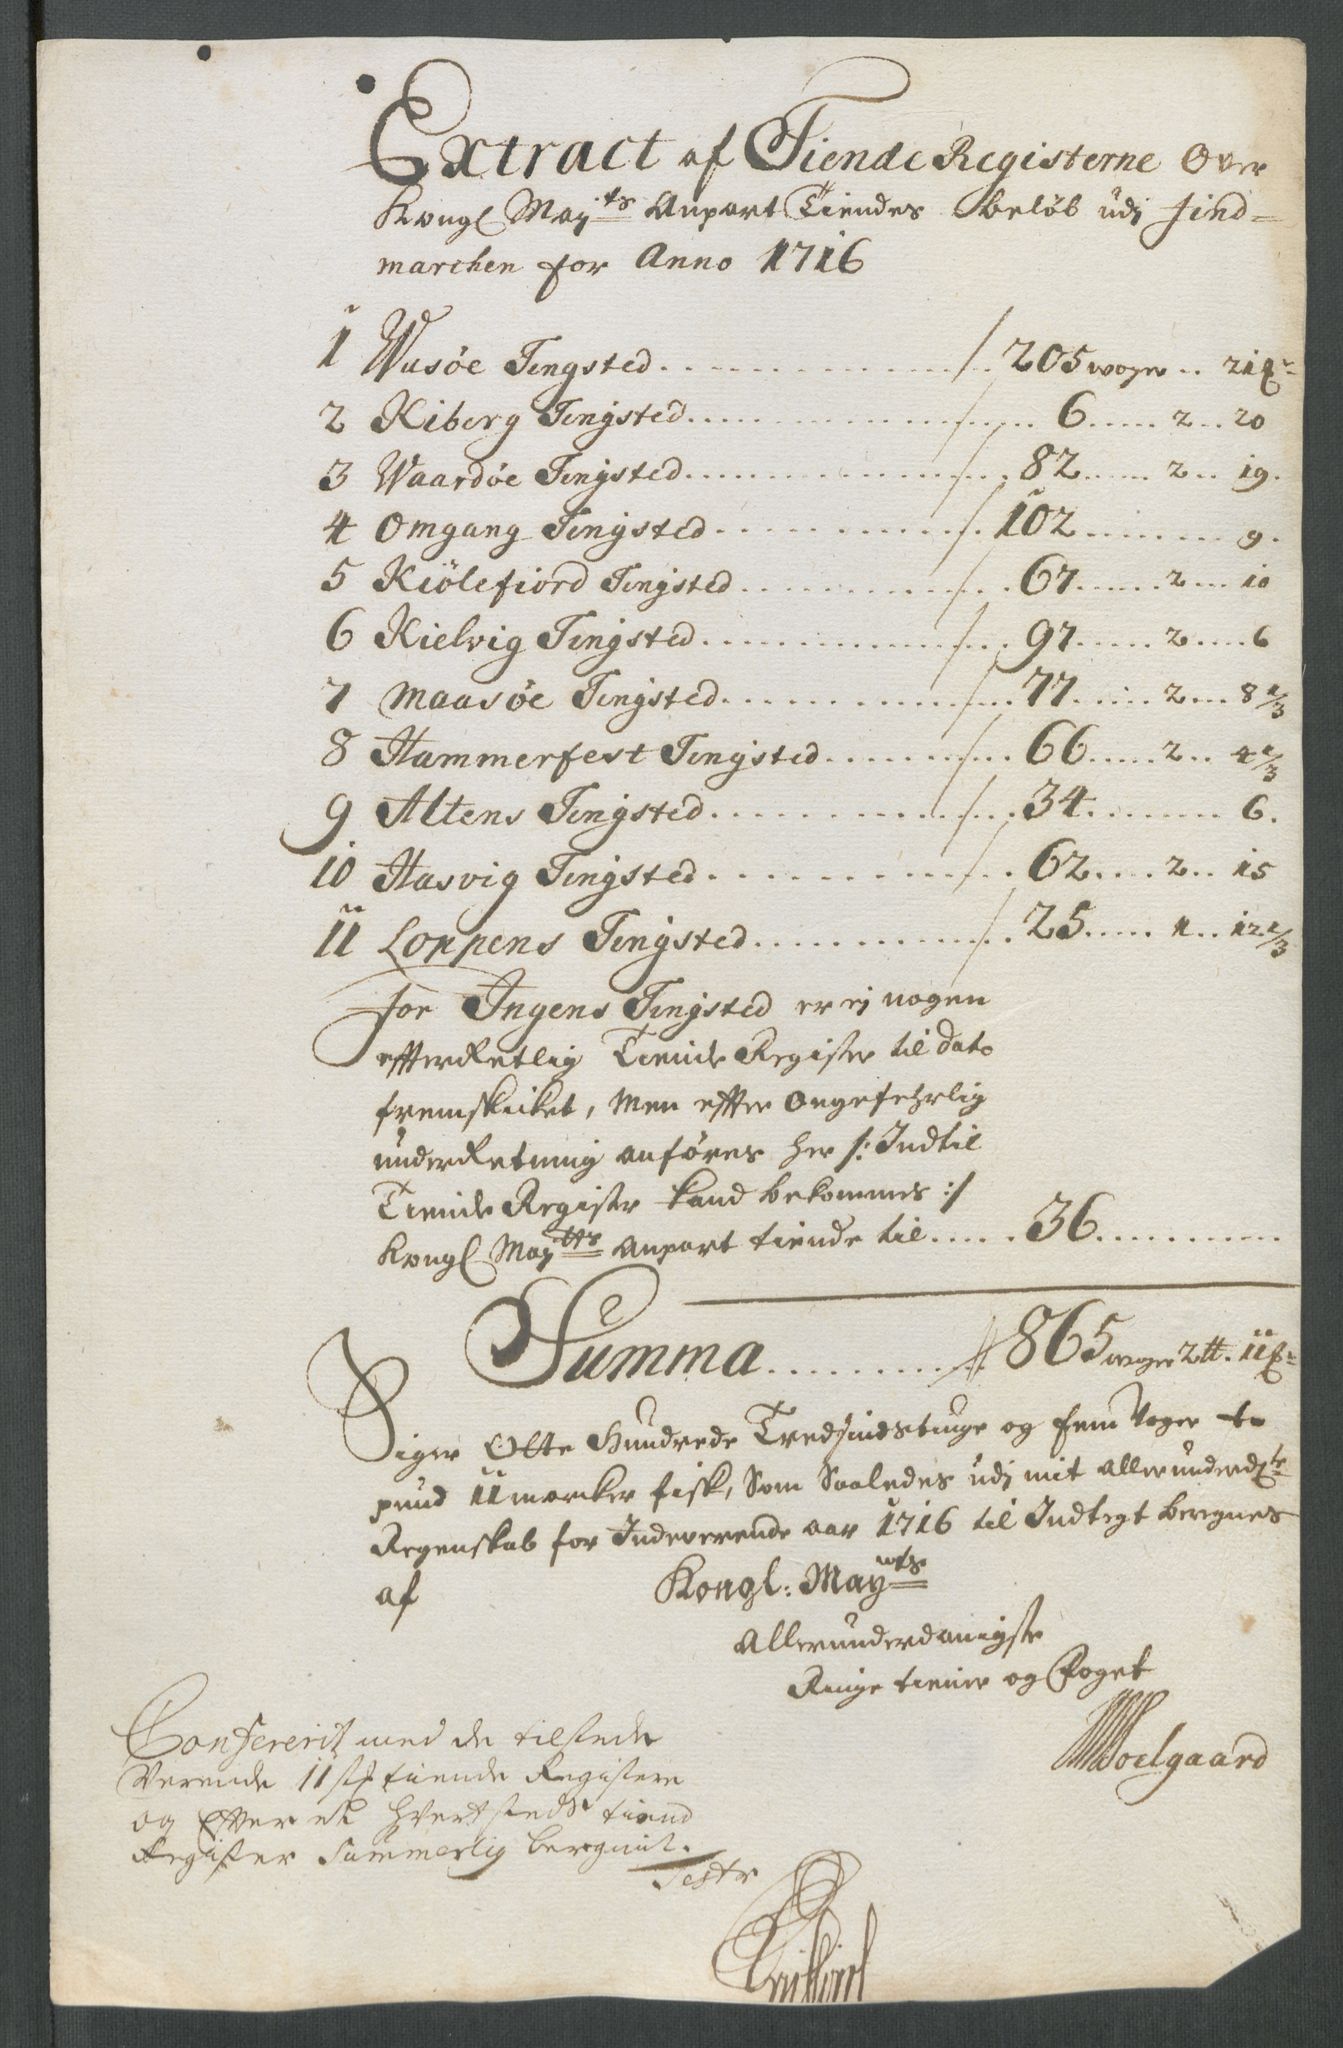 Extract af Tiende Registerne Over
Kongl May:ts Anpart Tiendes beløb udj find=
marchen for Anno 1716
1 Wasöe Tingsted 205 woger 21 ℔
2 Kiberg Tingsted 6 2 20
3 Waardöe Tingsted 82 2 19.
4 Omgang Tingsted 102 9.
5 Kiölefiord Tingsted 67 2 10
6 Kielvig Tingsted 97 2 6
7 Maasöe Tingsted 77 2 8 1/3
8 Hammerfest Tingsted 66 2 4 1/3
9 Altens Tingsted 34 6.
10 Hasvig Tingsted 62 2 15
11 Loppens Tingsted 25 1 12 1/3
for Ingens Tingsted er ej nogen
effterRetlig Tiende Register til dato
fremskiket, Men effter Ongefehrlig
underRetning anføres her /: Indtil
Tiende Register kand bekommes :/
Kongl May:tts anpart tiende til 36
Summa 865 woger 2 tt. 11 ℔
Siger Otte Hundrede Tredsindstiuge og fem Voger to
pund 11 marcker fisk, Som Saaledes udj mit allerunderd:te
Regenskab for Indeverende aar 1716 til Indtegt beregnes
af Kongl: May:tts
Allerunderdanigste
Ringe tiener og Foget
Soelgaard
Confererit med de tilstede
Verende 11 st: tiende Registere
og Effter et hvert steds tiend
Register Summerlig beregnit.
Test: